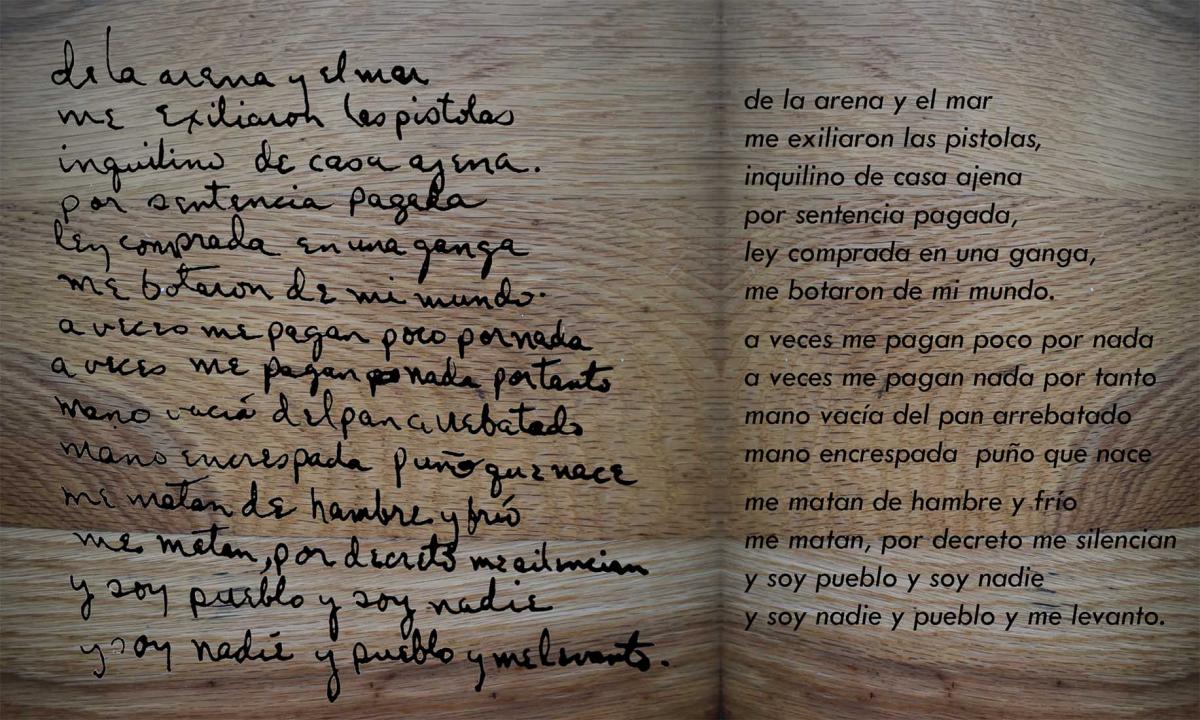 de la arena y el mar
me exiliaron las pistolas
inquilino de casa ajena.
por sentencia pagada
ley comprada en una ganga
me botaron de mi mundo.
a veces me pagan poco por nada
a veces me pagan nada por tanto
mano vacía del pan arrebatado
mano encrespada puño que nace
me matan de hambre y frío
me matan, por decreto me silencian
y soy pueblo y soy nadie
y soy nadie y pueblo y me levanto.
de la arena y el mar
me exiliaron las pistolas,
inquilino de casa ajena
por sentencia pagada,
ley comprada en una ganga,
me botaron de mi mundo.
a veces me pagan poco por nada
a veces me pagan nada por tanto
mano vacía del pan arrebatado
mano encrespada puño que nace
me matan de hambre y frío
me matan, por decreto me silencian
y soy pueblo y soy nadie
y soy nadie y pueblo y me levanto.